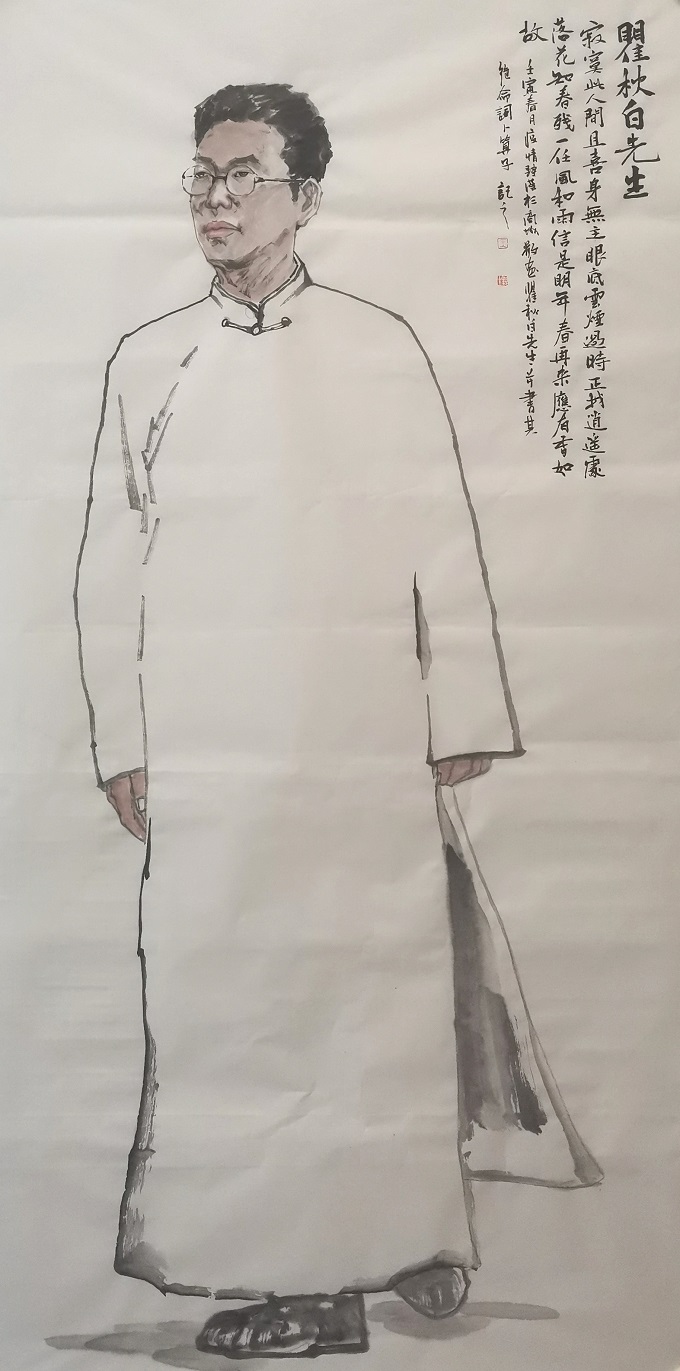 瞿秋白先生
寂寞此人間且喜身無主眼底雲煙過時正我逍遥處
落花知春殘一任風和雨信是明年春再來應有香如
故
壬寅春月疫情 於 畫瞿秋白先生并書其
絶命詞卜算子 記之